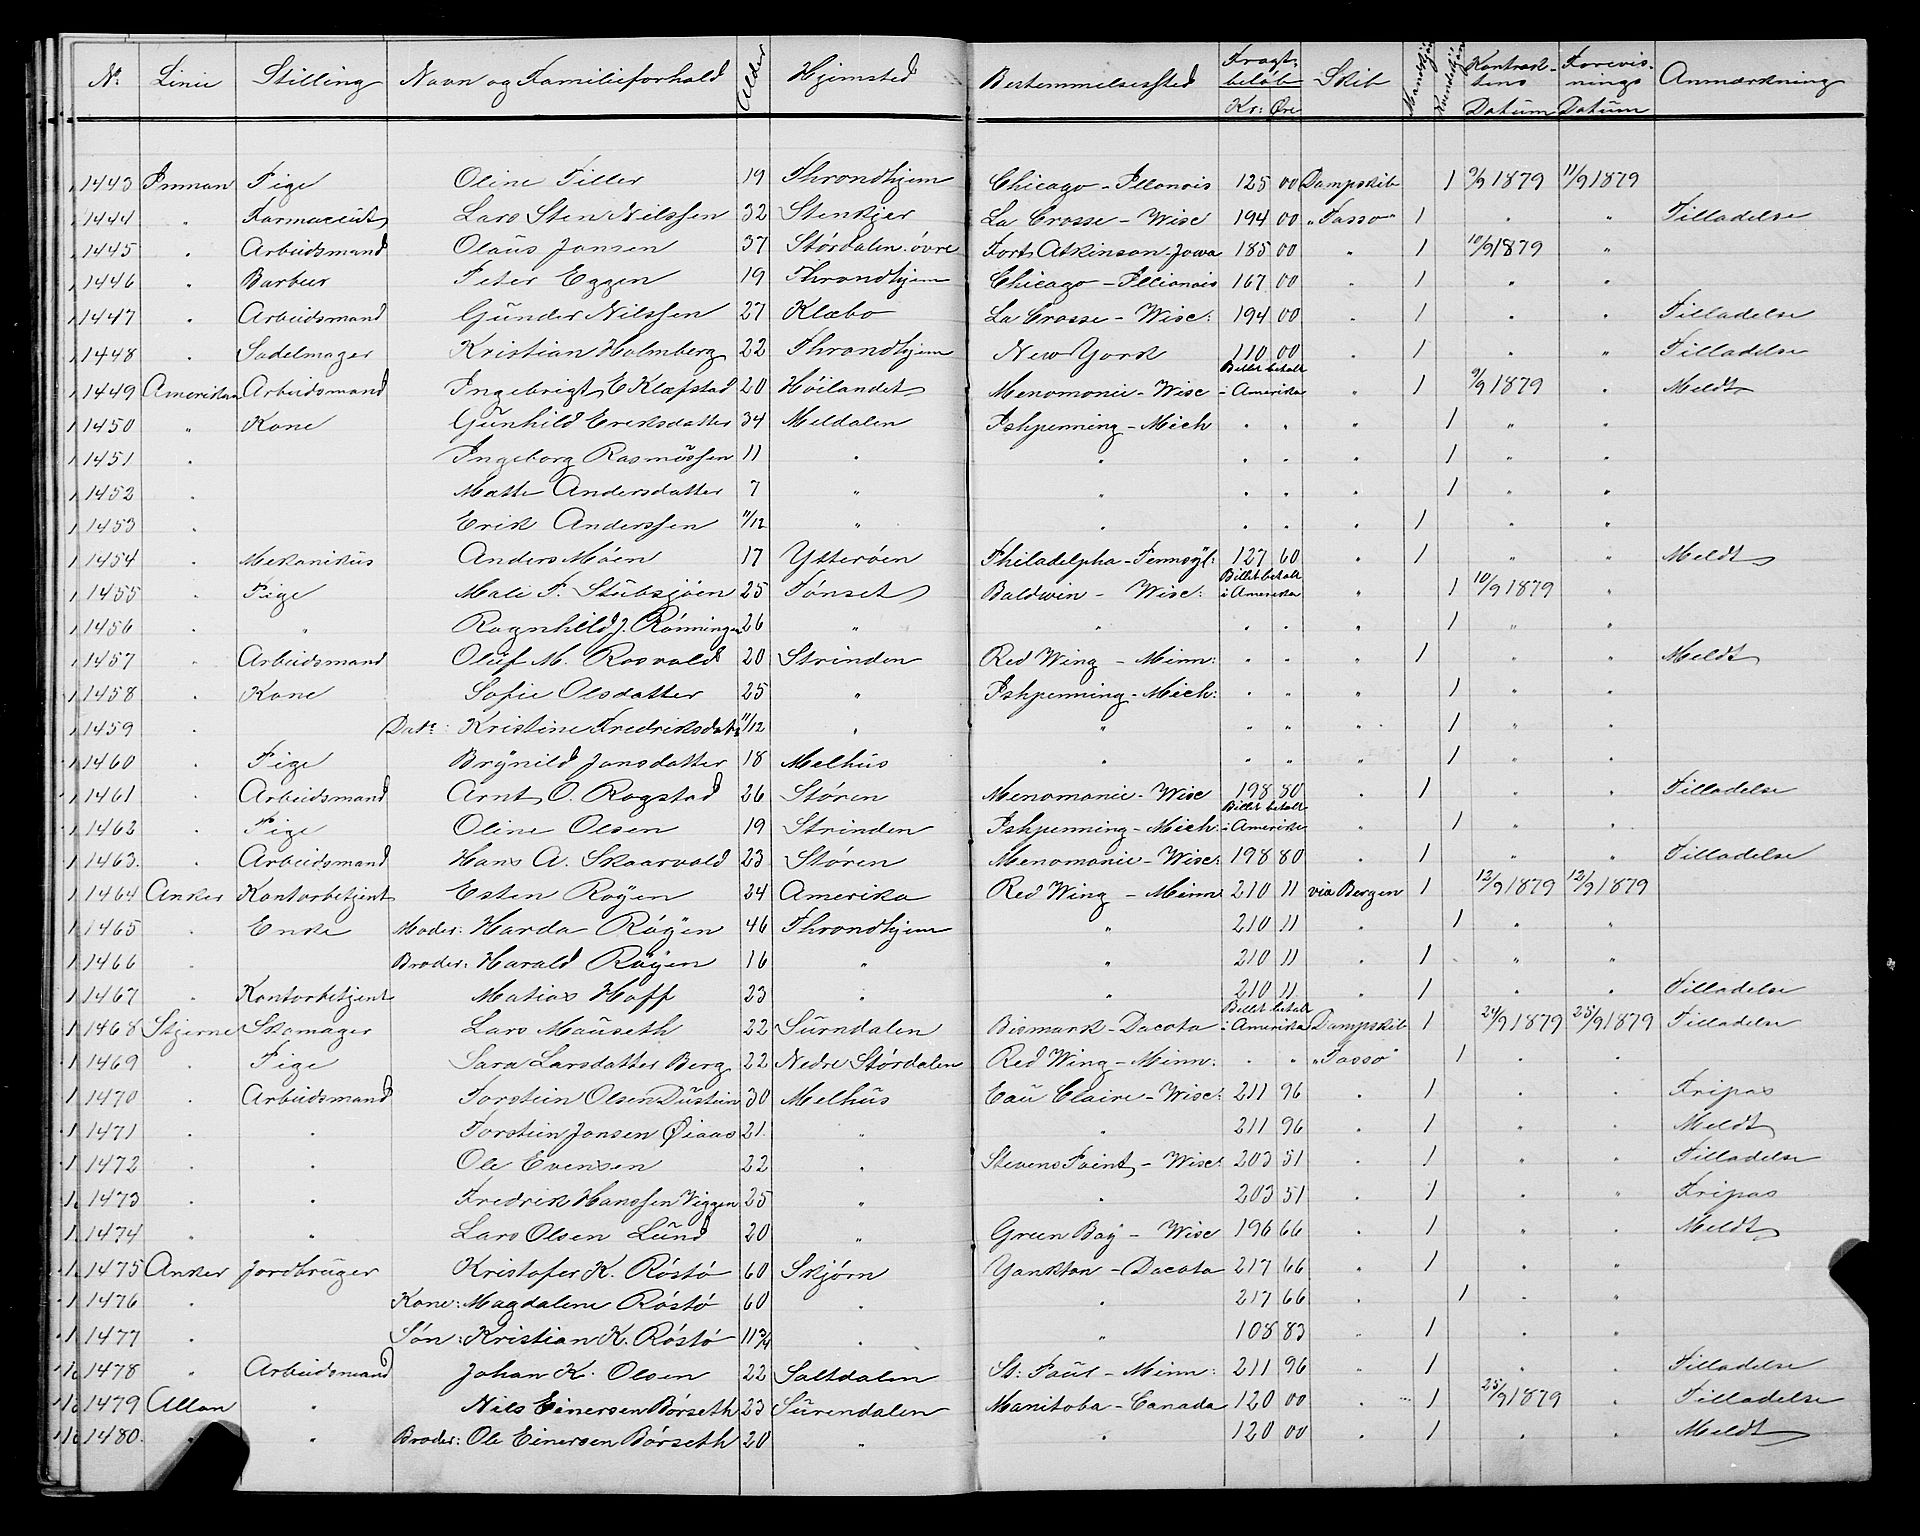 No Linie Stilling Navn og Familieforhold Alder Hjemsted Bestemmelsessted Fragtbeløb Kr: Øre Skib Mandkjøn Kvindekjøn Kontraktens Datum Forevisnings Datum Anmærkning
1443 Inman Pige Oline Tiller 19 Throndhjem Chicago - Illonois 125 00 Dampskib 1 9/9 1879 11/9 1879
1444 " Farmaceut Lars Sten Nilssen 32 Stenkjer La Crosse - Wisc 194 00 "Tasso" 1 " " Tilladelse
1445 " Arbeidsmand Olaus Jansen 37 Stórdalen óvre Fort Atkinson - Jowa 185 00 " 1 10/9 1879 "
1446 " Barber Peter Eggen 19 Throndhjem Chicago - Illionois 167 00 " 1 " "
1447 " Arbeidsmand Gunder Nilssen 27 Klæbo La Crosse - Wisc: 194 00 " 1 " " Tilladelse
1448 " Sadelmager Kristian Holmberg 22 Throndhjem New York 110 00 " 1 " " Tilladelse
1449 Amerikan Arbeidsmand Ingebrigt E Klæfstad 20 Höilandet Menomonie - Wisc Billet betalt i Amerika " 1 9/9 1879 " Meldt
1450 " Kone Gunhild Eriksdatter 34 Meldalen Ishpenning - Mich " " " 1 " "
1451 " Ingeborg Rasmussen 11 " " " " " 1 " "
1452 " Matte Andersdatter 7 " " " " " 1 " "
1453 " Erik Anderssen 11/12 " " " " " 1 " "
1454 " Mekanikus Anders Móen 17 Ytteróen Philadelpha - Pennsyl: 127 60 " 1 " " Meldt
1455 " Pige Mali P. Stubsjóen 25 Tónset Baldwin - Wisc: Billet betalt i Amerika " 1 10/9 1879 "
1456 " " Ragnhild J. Rónningen 26 " " " " " 1 " "
1457 " Arbeidsmand Oluf M. Rosvold 20 Strinden Red Wing - Minn: " " " 1 " " Meldt
1458 " Kone Sofie Olsdatter 25 " Ishpenning - Mich: " " " 1 " "
1459 " Datr: Kristine Fredriksdatr 11/12 " " " " " 1 " "
1460 " Pige Brynild Jonsdatter 18 Melhus " " " " 1 " "
1461 " Arbeidsmand Arnt O. Rogstad 26 Stóren Menomonie - Wisc 198 80 " 1 " " Tilladelse
1462 " Pige Oline Olsen 19 Strinden Ishpenning - Mich: Billet betalt i Amerika " 1 " "
1463 " Arbeidsmand Hans A. Skaarvold 23 Stóren Menomonie - Wisc: 198 80 " 1 " " Tilladelse
1464 Anker Kontorbetjent Esten Róyen 24 Amerika Red Wing - Minn 210 11 via Bergen 1 12/9 1879 12/9 1879
1465 " Enke Moder: Harda Róyen 46 Throndhjem " 210 11 " 1 " "
1466 " Broder: Harald Róyen 16 " " 210 11 " 1 " "
1467 " Kontorbetjent Matias Hoff 23 " " 210 11 " 1 " " Tilladelse
1468 Stjerne Skomager Lars Mauseth 22 Surndalen Bismark - Dacota Billet betalt i Amerika Dampskib 1 24/9 1879 25/9 1879 Tilladelse
1469 " Pige Sara Larsdatter Berg 22 Nedre Stórdalen Red Wing - Minn: " " "Tasso" 1 " "
1470 " Arbeidsmand Torstein Olsen Dustein 30 Melhus Eau Claire - Wisc: 211 96 " 1 " " Fripas
1471 " " Torstein Jonsen Øiaas 21 " " 211 96 " 1 " " Meldt
1472 " " Ole Evensen 22 " Stevens Point - Wisc: 203 51 " 1 " " Tilladelse
1473 " " Fredrik Hanssen Viggen 25 " " 203 51 " 1 " " Fripas
1474 " " Lars Olsen Lund 20 " Green Bay - Wisc 196 66 " 1 " " Meldt
1475 Anker Jordbruger Kristofer K. Róstó 60 Skjórn Yankton - Dacota 217 66 " 1 " "
1476 " Kone: Magdalene Róstó 60 " " 217 66 1 " "
1477 " Són: Kristian K. Róstó 11 3/4 " " 108 83 " 1 " "
1478 " Arbeidsmand Johan K. Olsen 22 Saltdalen St: Paul - Minn: 211 96 " 1 " " Tilladelse
1479 Allan " Nils Einersen Bórseth 23 Surendalen Manitoba - Canada 120 00 " 1 25/9 1879 " Tilladelse
1480 " " Broder: Ole Einersen Bórseth 20 " " 120 00 " 1 " " Meldt